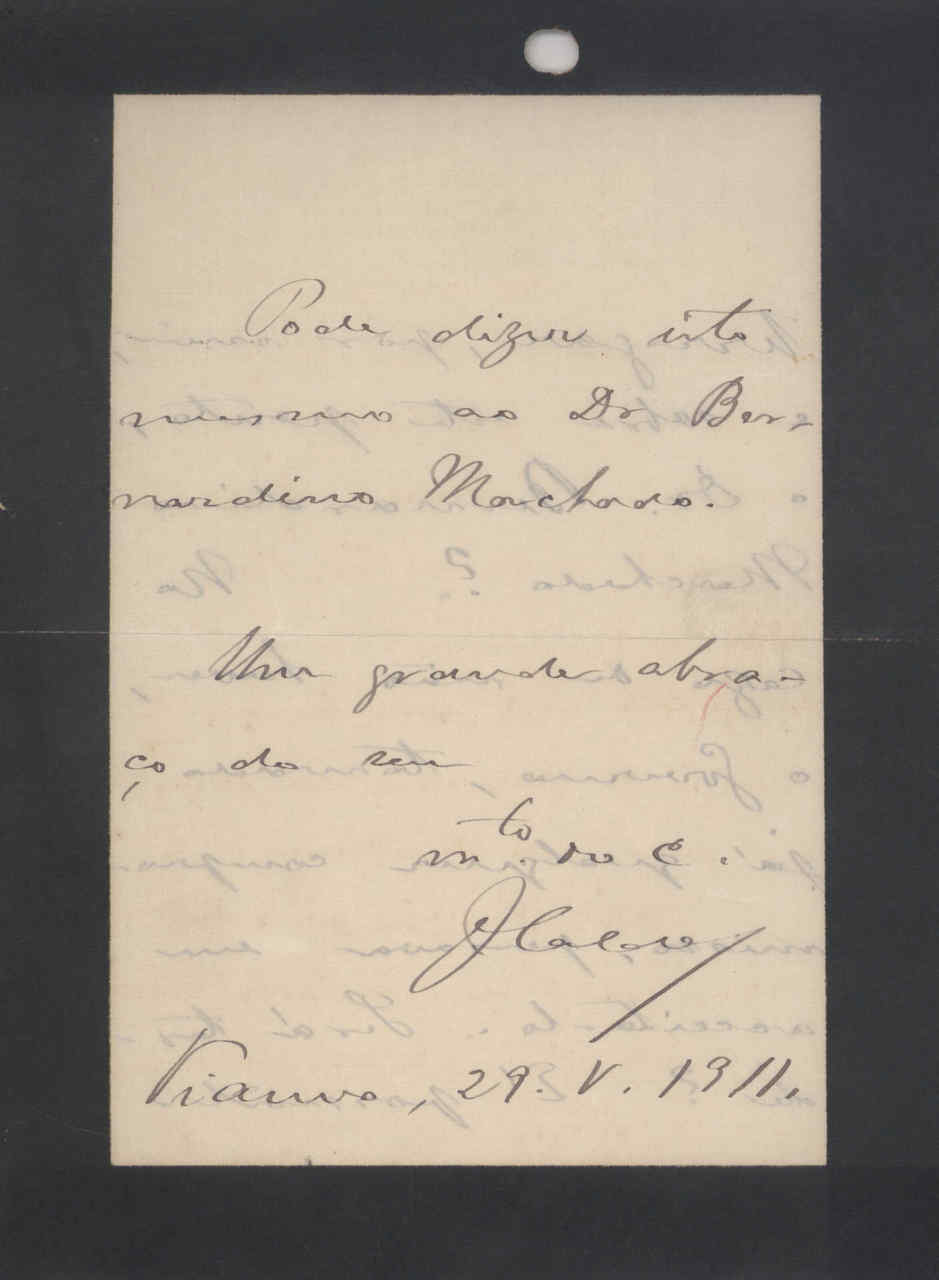 Pode dizer isto
mesmo ao Dr Ber-
nardino Machado.
Um grande abra-
ço do seu
m.to do C.
Vianna, 29. V. 1911.